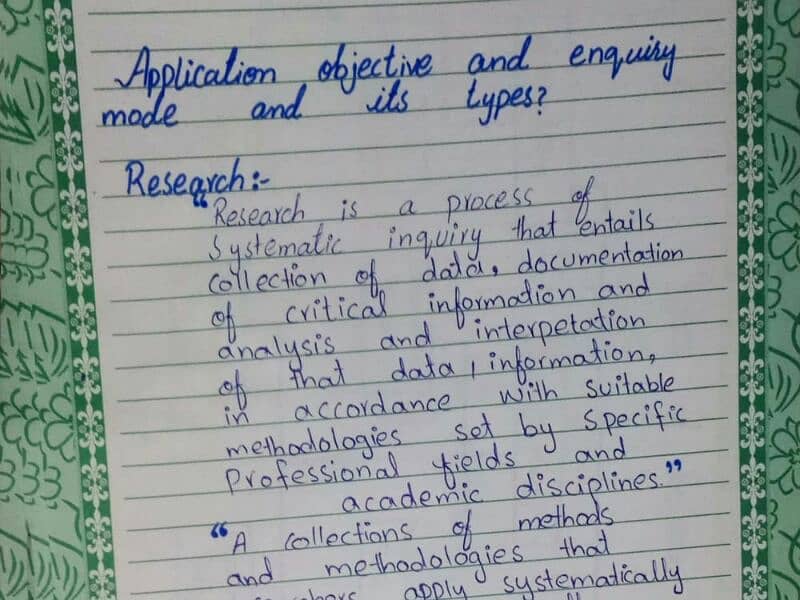 Application objective and enquiry
mode and its types?
Research:-
"Research is a process of
Systematic inquiry that entails
collection of data, documentation
of critical information and
analysis and interpetation
of that data, information,
in accordance with suitable
methodologies set by specific
Professional fields and
academic disciplines."
"A collections of methods
and methodologies that
apply systematically